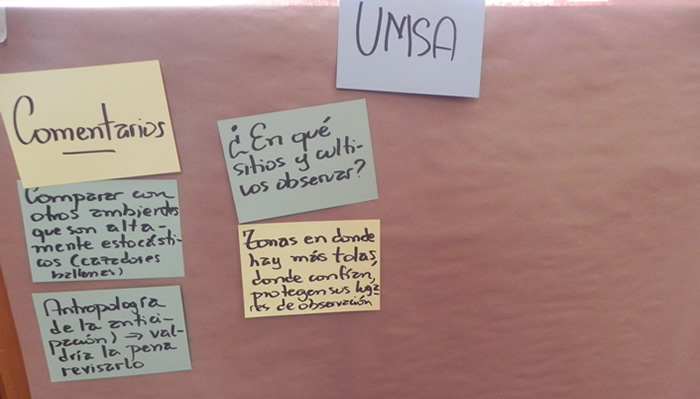 UMSA
Comentarios
Comparar con
otros ambientes
que son alta-
mente estocásti-
cos (cazadores
ballenes)
Antropología
de la antici-
pación) → val-
dría la pena
revisarlo
¿En qué
sitios y culti-
vos observar?
Zonas en donde
hay más tolas,
donde confían,
protegen sus luga
res de observación